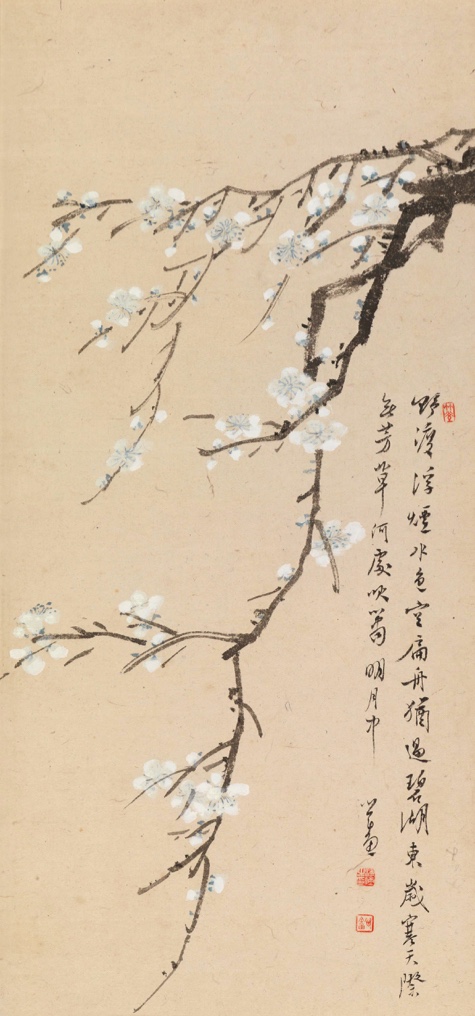 野渡浮煙水色空扁舟猶過碧湖東歲寒天際
無芳草何處吹簫明月中
心畬